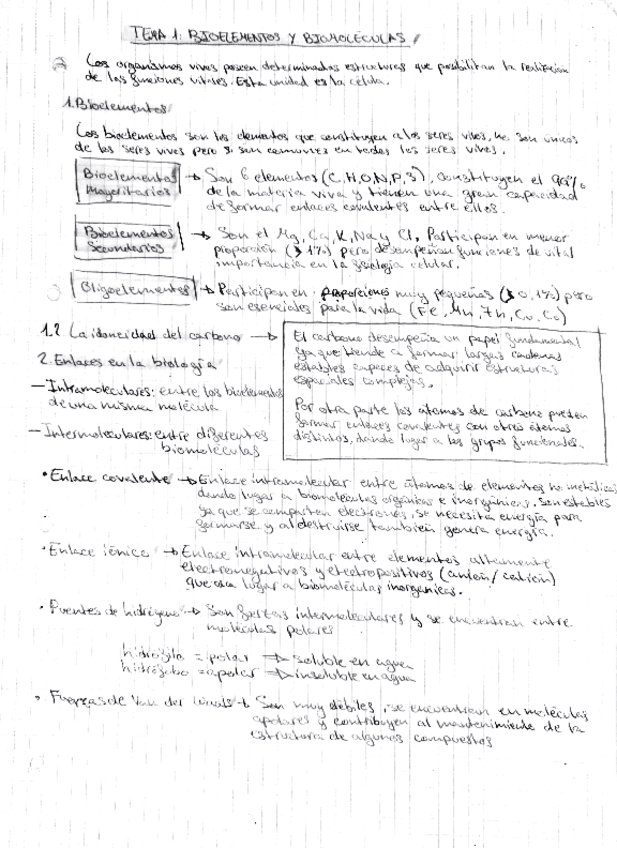 TEMA 1: BIOELEMENTOS Y BIOMOLÉCULAS
Los organismos vivos poseen determinadas estructuras que posibilitan la realización
de las funciones vitales. Esta unidad es la célula.
1. Bioelementos
Los bioelementos son los elementos que constituyen a los seres vivos, no son únicos
de los seres vivos pero si son comunes en todos los seres vivos.
Bioelementos Mayoritarios → Son 6 elementos (C, H, O, N, P, S), constituyen el 99%
de la materia viva y tienen una gran capacidad
de formar enlaces covalentes entre ellos.
Bioelementos Secundarios → Son el Mg, Ca, K, Na y Cl, Participan en menor
proporción (1%) pero desempeñan funciones de vital
importancia en la fisiología celular.
Oligoelementos → Participan en proporciones muy pequeñas (0,1%) pero
son esenciales para la vida (Fe, Mn, Zn, Cu, Co)
1.2 La idoneidad del carbono →
El carbono desempeña un papel fundamental
ya que tiende a formar largas cadenas
estables capaces de adquirir estructuras
espaciales complejas.
Por otra parte los átomos de carbono pueden
formar enlaces covalentes con otros átomos
distintos, dando lugar a los grupos funcionales.
2. Enlaces en la biología
— Intramoleculares: entre los bioelementos
de una misma molécula
— Intermoleculares: entre diferentes
biomoléculas
• Enlace covalente → Enlace intramolecular entre átomos de elementos no metálicos
dando lugar a biomoléculas orgánicas e inorgánicas. Son estables
ya que se comparten electrones, se necesita energía para
formarse y al destruirse también genera energía.
• Enlace iónico → Enlace intramolecular entre elementos altamente
electronegativos y electropositivos (anión / catión)
que da lugar a biomoléculas inorgánicas.
• Puentes de hidrógeno → Son fuerzas intermoleculares y se encuentran entre
moléculas polares
hidrófilo = polar ⇒ soluble en agua
hidrófobo = apolar ⇒ insoluble en agua
• Fuerzas de Van der Waals → Son muy débiles, se encuentran en moléculas
apolares y contribuyen al mantenimiento de la
estructura de algunos compuestos